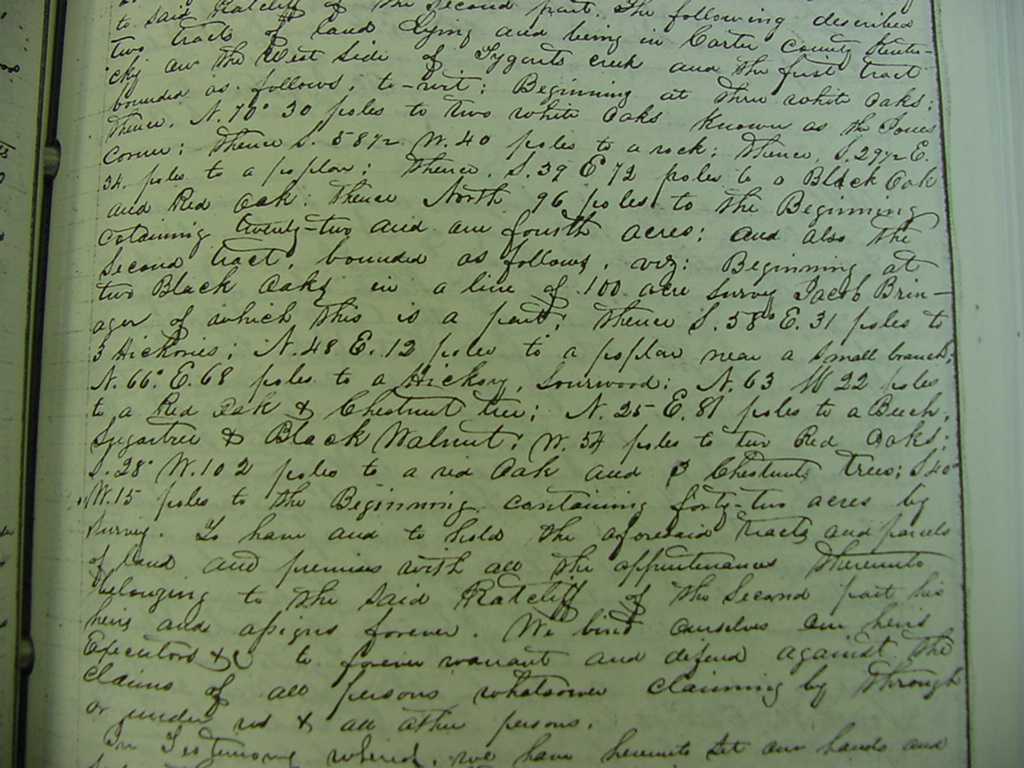 to said Ratcliff of the Second part. The following described
two tracts of land lying and being in Carter County Kentu-
cky on the West Side of Tygarts creek and the first tract
bounded as follows, to-wit: Beginning at three white oaks;
thence, N. 70° 30 poles to two white oaks known as the Jones
corner; thence S. 58½ W. 40 poles to a rock; thence, S. 29½ E.
34. poles to a poplar; thence, S. 39 E 72 poles to a Black Oak
and Red Oak. thence North 96 poles to the Beginning
cotaining twenty-two and one fourth acres; and also the
Second tract, bounded as follows, viz: Beginning at
two Black Oaks in a line of 100 acre survey Jacob Brin-
ager of which this is a part; thence S. 58° E. 31 poles to
3 Hickories; N. 48 E. 12 poles to a poplar near a small branch;
N. 66° E. 68 poles to a Hickory, Sourwood; N. 63 W 22 poles
to a Red Oak & Chestnut tree; N. 25 E. 81 poles to a Beech,
Sugartree & Black Walnut; W. 54 poles to two Red Oaks;
S. 28° W. 102 poles to a red Oak and 3 Chestnut trees; S 40°
W. 15 poles to the Beginning, containing forty-two acres by
Survey. To have and to hold the aforesaid tracts and parcels
of land and premises with all the appurtenances thereunto
belonging to the said Ratcliff of the Second part his
heirs and assigns forever. We bind ourselves our heirs
Executors &c to forever warrant and defend against the
claims of all persons whatsoever claiming by through
or under us & all other persons.
In Testimony whereof, we have hereunto set our hands and